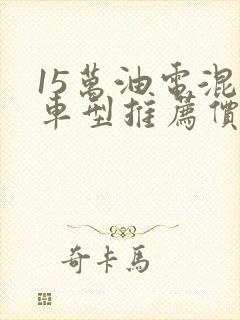 15萬油電混
車型推薦價
奇卡馬